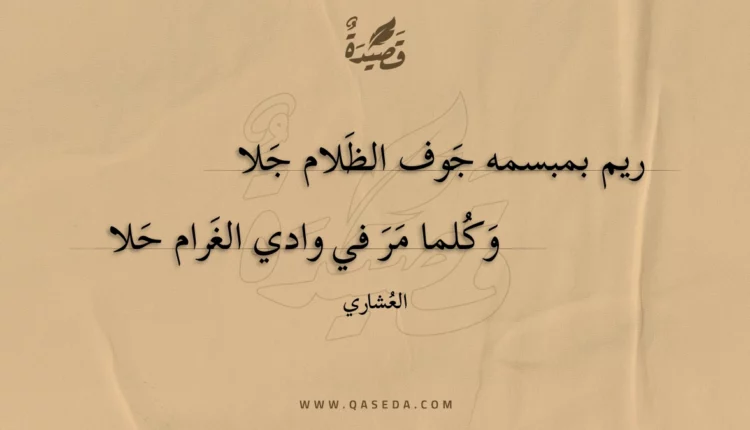 قَصِيدَةٌ
ريم بمبسمه جَوف الظَلام جَلا
وَكُلما مَرَ في وادي الغَرام حَلا
العُشاري
WWW.QASEDA.COM